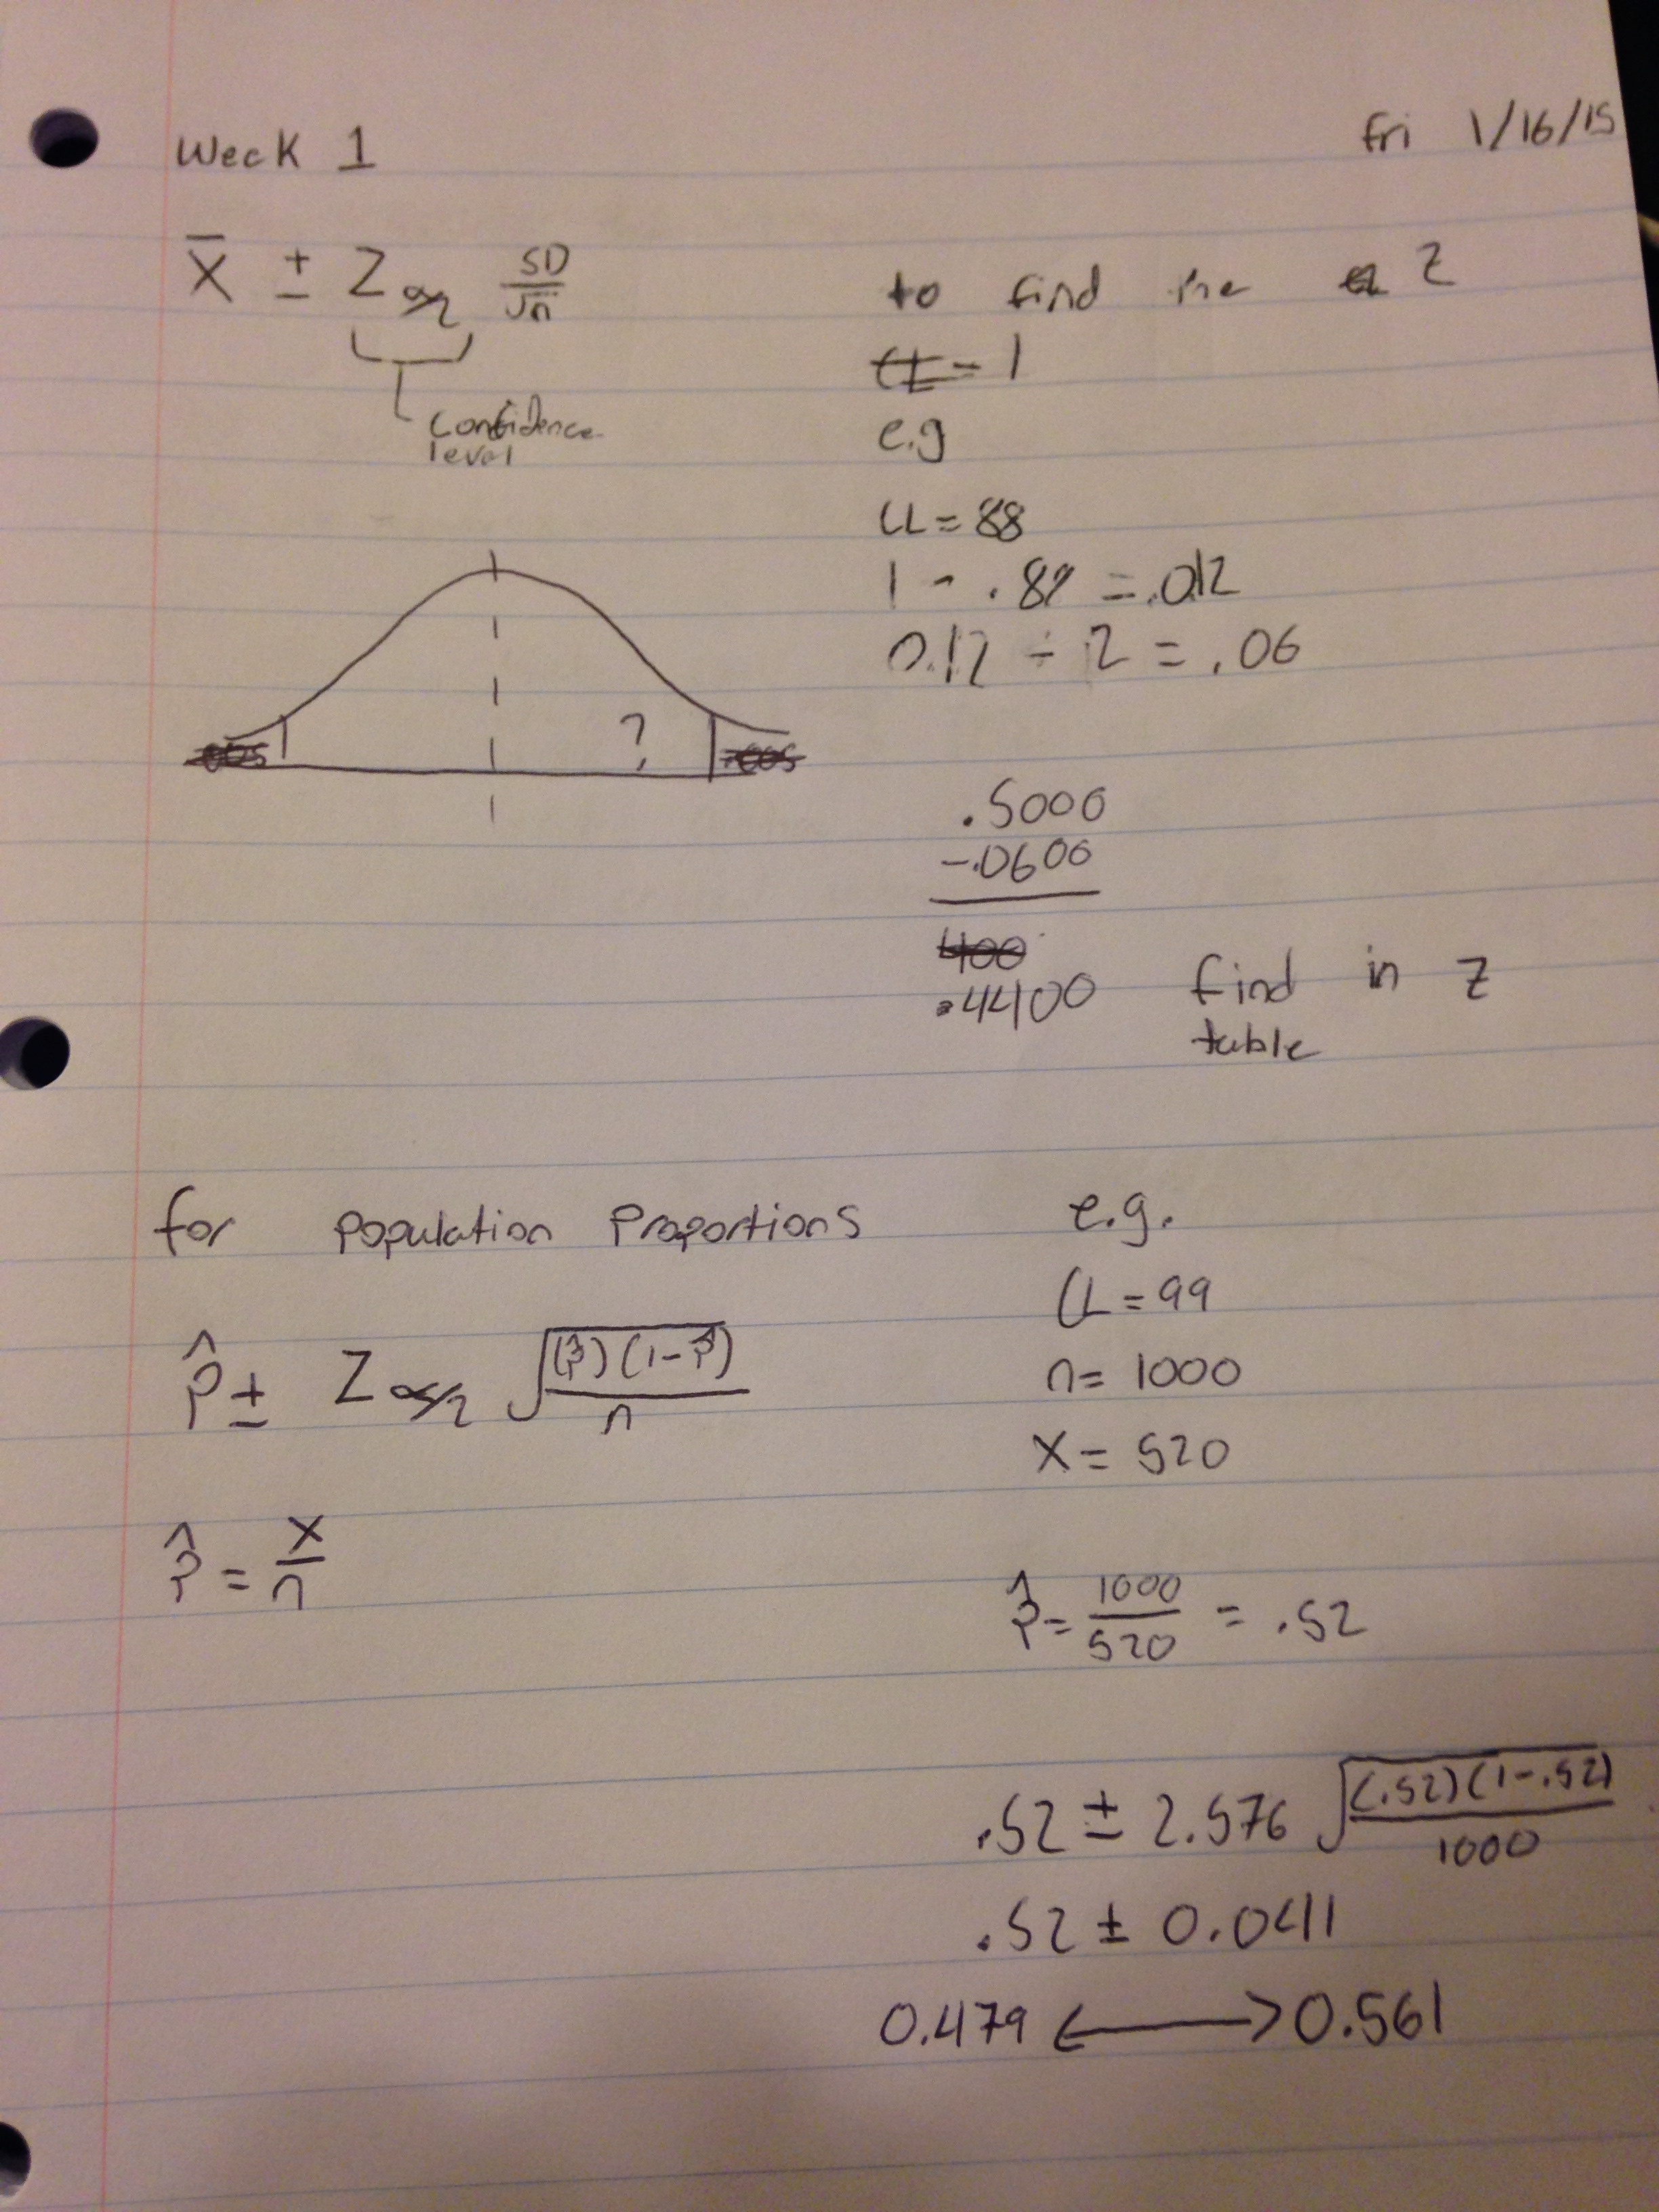 Week 1
Fri 1/16/15
X̄ ± Z α/2 SD/√n
Confidence
level
to find the Z
CL - 1
e.g
CL = 88
1 - .88 = .012
0.12 ÷ 2 = .06
?
.005
.005
.5000
-.0600
400
.4400 find in Z
table
for Population Proportions
p̂ ± Z α/2 √(p̂)(1-p̂)/n
p̂ = x/n
e.g.
CL = 99
n = 1000
X = 520
p̂ = 1000/520 = .52
.52 ± 2.576 √(.52)(1-.52)/1000
.52 ± 0.0411
0.479 ⟷ 0.561